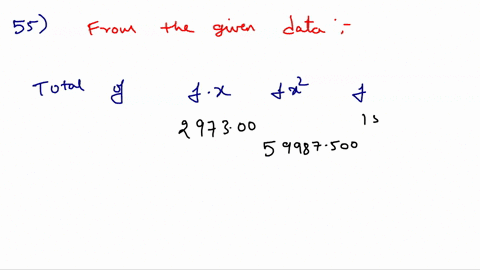 55) From the given data :-
Total of f.x fx² f
2973.00 15
59987.500